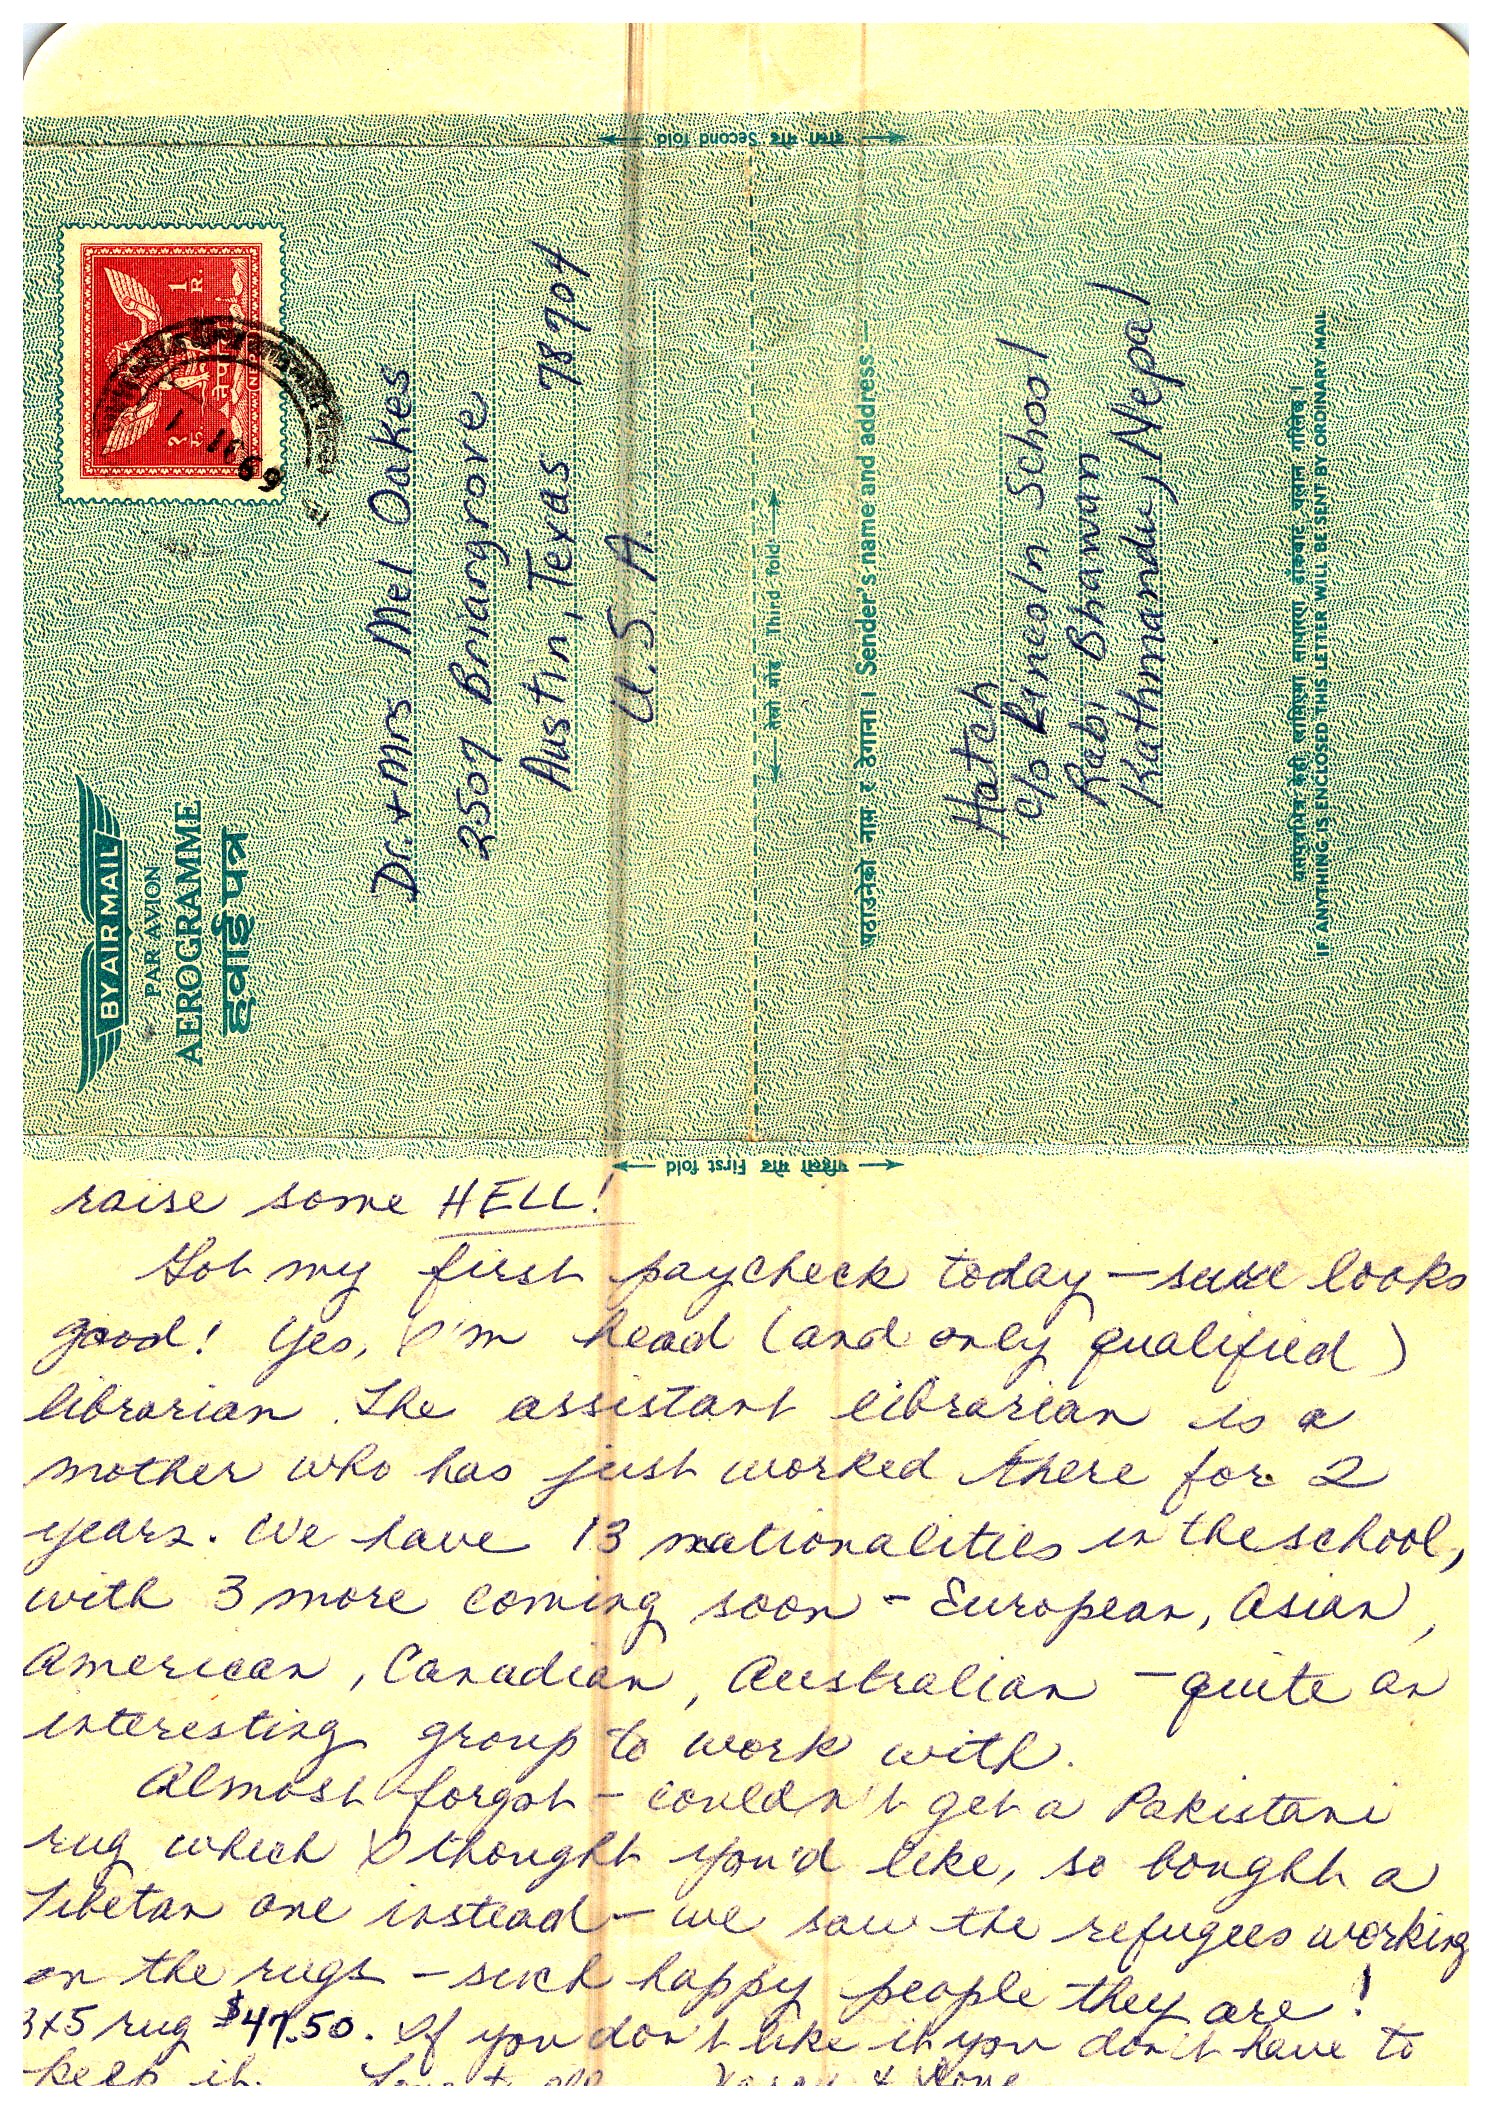 दोस्रो मोड Second fold
1 R.
नेपाल
NEPAL
१ रु.
BY AIR MAIL
PAR AVION
AEROGRAMME
हवाई पत्र
Dr. + Mrs Mel Oakes
2507 Briargrove
Austin, Texas 78704
U.S.A.
तेस्रो मोड Third fold
पठाउनेको नाम र ठेगाना। Sender's name and address.
Hatch
c/o Lincoln School
Rabi Bhawan
Kathmandu, Nepal
यसपत्रभित्र केही राखिएमा साधारण डाँकबाट चलान गरिनेछ।
IF ANYTHING IS ENCLOSED THIS LETTER WILL BE SENT BY ORDINARY MAIL
पहिलो मोड First fold
raise some HELL!
Got my first paycheck today – sure looks
good! Yes, I'm head (and only qualified)
librarian. The assistant librarian is a
mother who has just worked there for 2
years. We have 13 nationalities in the school,
with 3 more coming soon – European, Asian,
American, Canadian, Australian – quite an
interesting group to work with.
Almost forgot – couldn't get a Pakistani
rug which I thought you'd like, so bought a
Tibetan one instead – we saw the refugees working
on the rugs – such happy people they are!
3x5 rug $47.50. If you don't like it you don't have to
keep it. Love to all